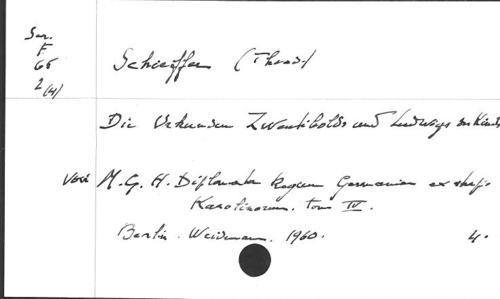 Ser.
F
66
2 (4)
Schieffer (Theod.)
Die Urkunden Zwentibolds und Ludwigs des Kindes
Voir M. G. H. Diplomata Regum Germaniae ex stirp.
Karolinorum. tom IV.
Berlin. Weidmann. 1960. 4.